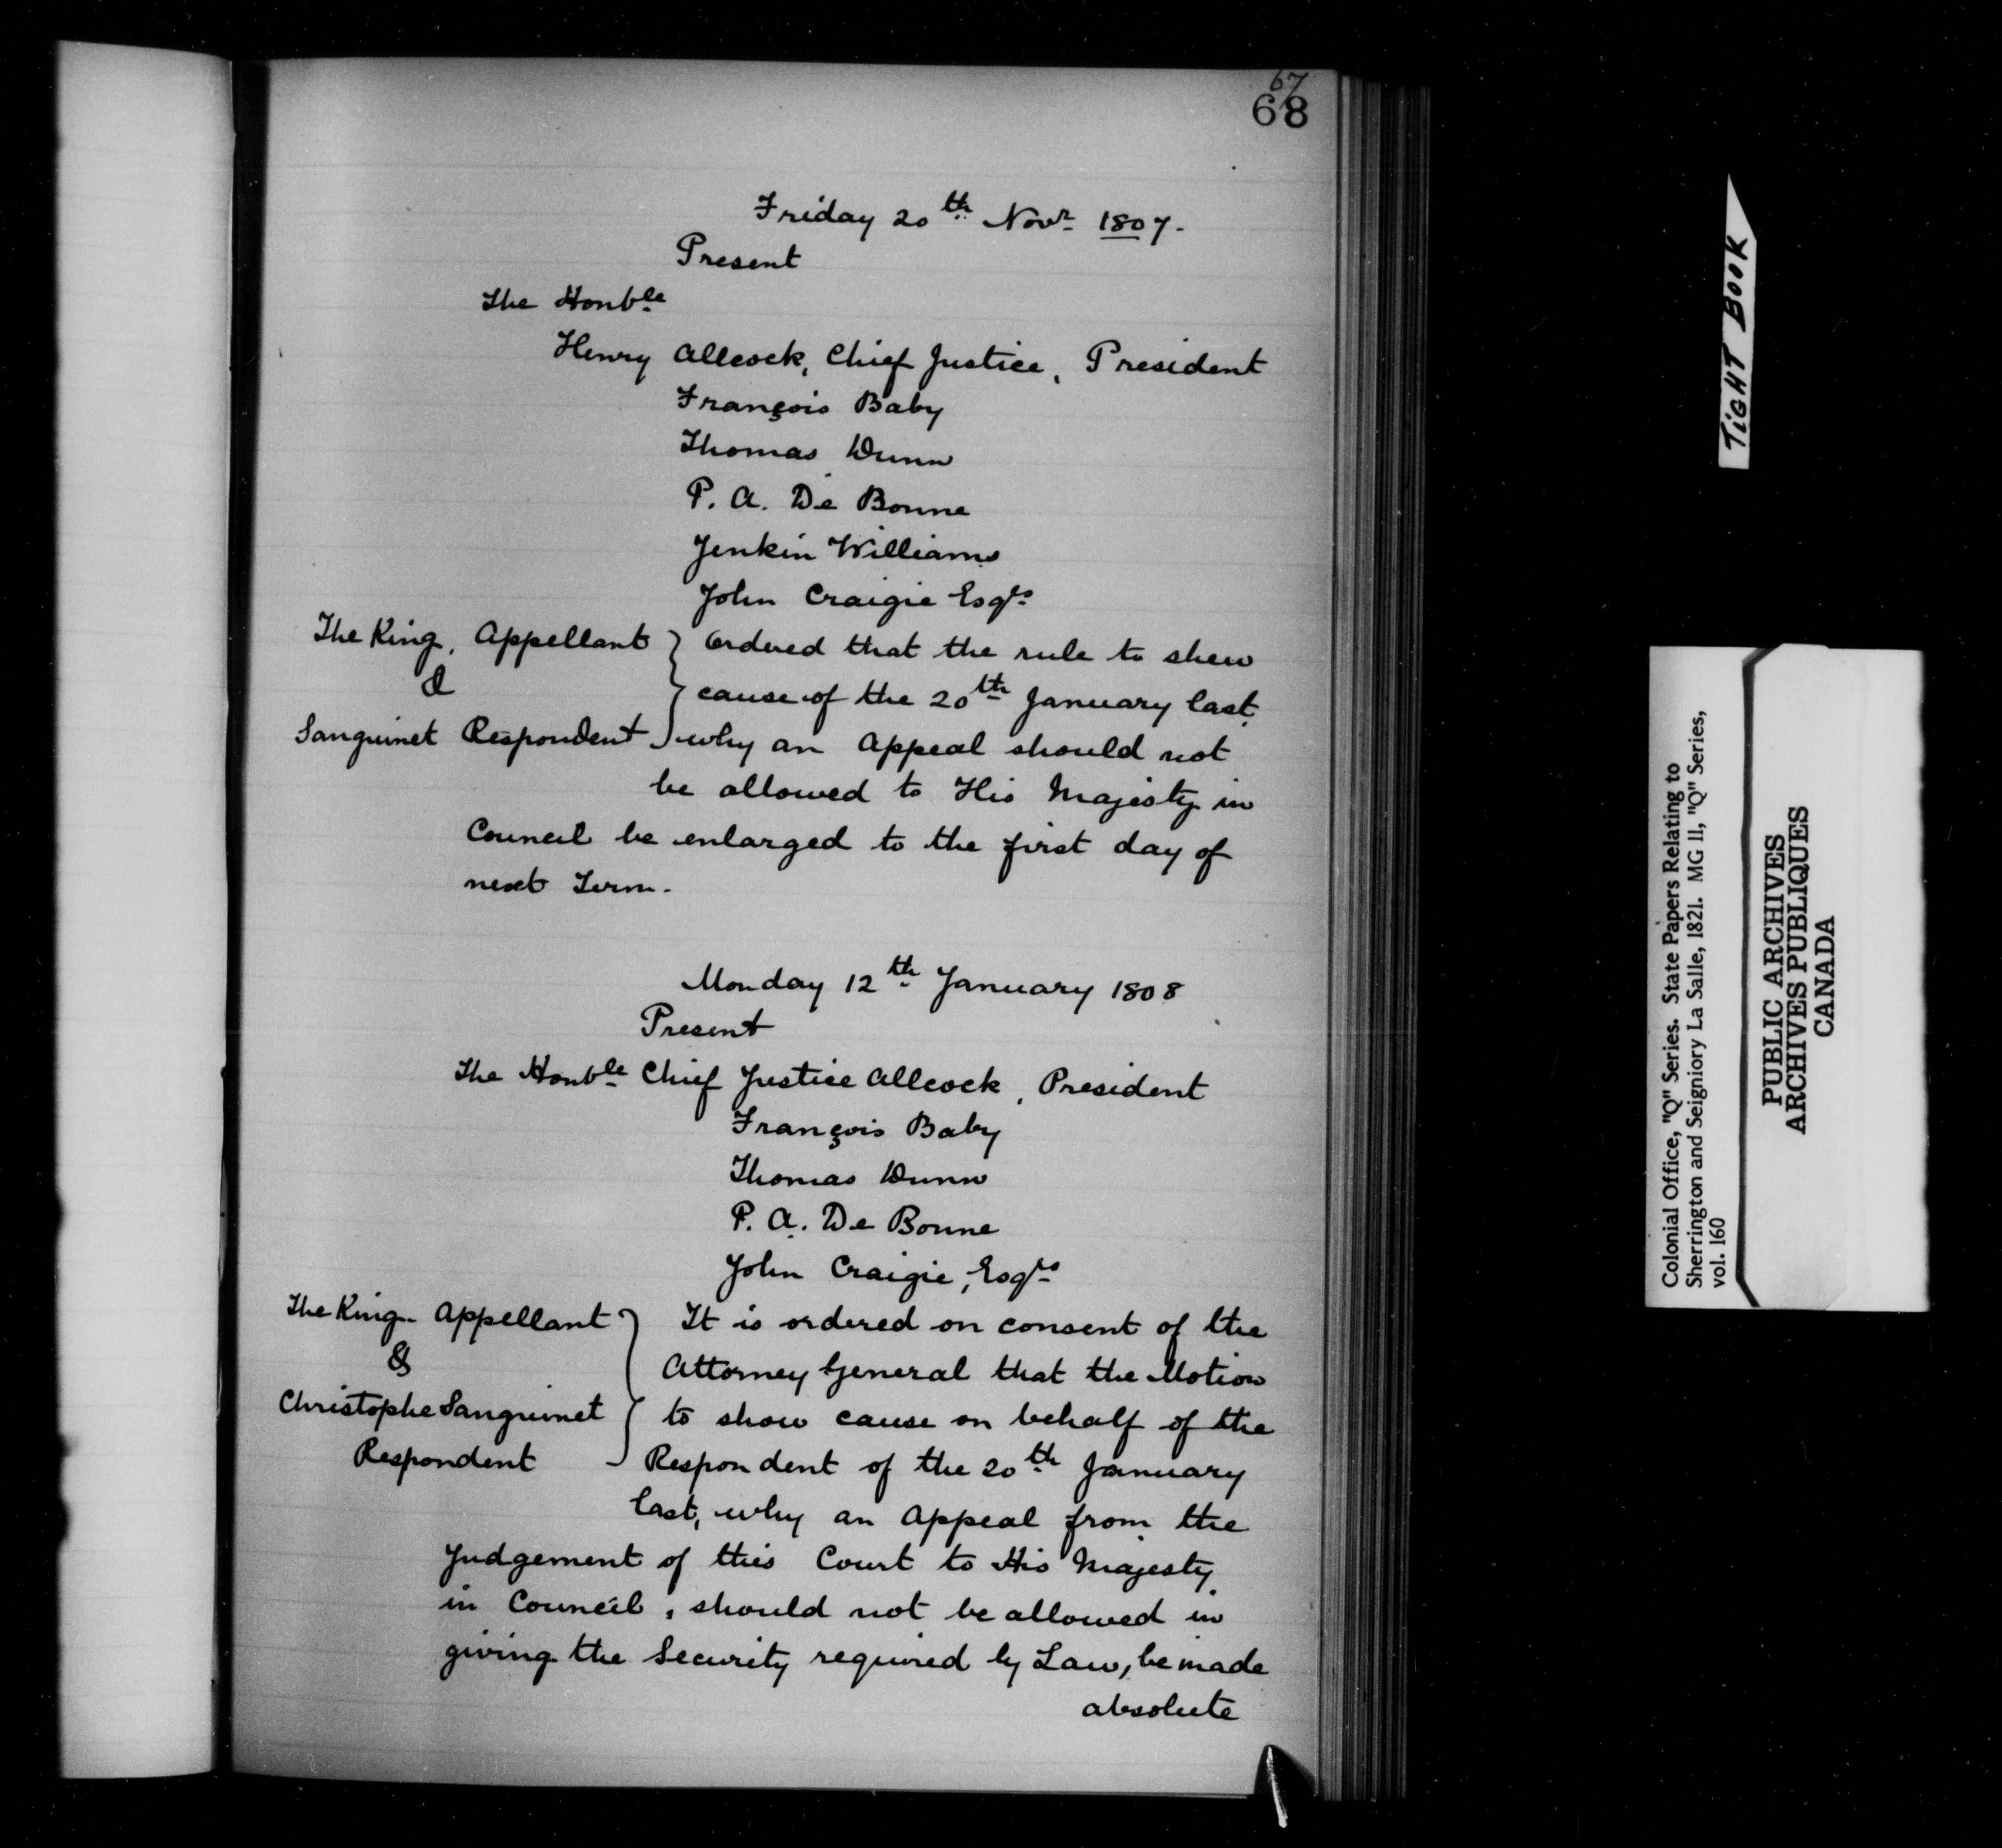 67
68
Friday 20th Novr 1807.
Present
The Honble
Henry Allcock, Chief Justice, President
François Baby
Thomas Dunn
P. A. De Bonne
Jenkin Williams
John Craigie Esqrs
The King, Appellant
&
Sanguinet Respondent
Ordered that the rule to shew
cause of the 20th January last,
why an Appeal should not
be allowed to His Majesty in
Council be enlarged to the first day of
next Term.
Monday 12th January 1808
Present
The Honble Chief Justice Allcock, President
François Baby
Thomas Dunn
P. A. De Bonne
John Craigie, Esqrs
The King - Appellant
&
Christophe Sanguinet
Respondent
It is ordered on consent of the
Attorney General that the Motion
to show cause on behalf of the
Respondent of the 20th January
last, why an Appeal from the
Judgement of this Court to His Majesty
in Council, should not be allowed in
giving the Security required by Law, be made
absolute
TIGHT BOOK
Colonial Office, "Q" Series. State Papers Relating to
Sherrington and Seigniory La Salle, 1821. MG 11, "Q" Series,
vol. 160
PUBLIC ARCHIVES
ARCHIVES PUBLIQUES
CANADA